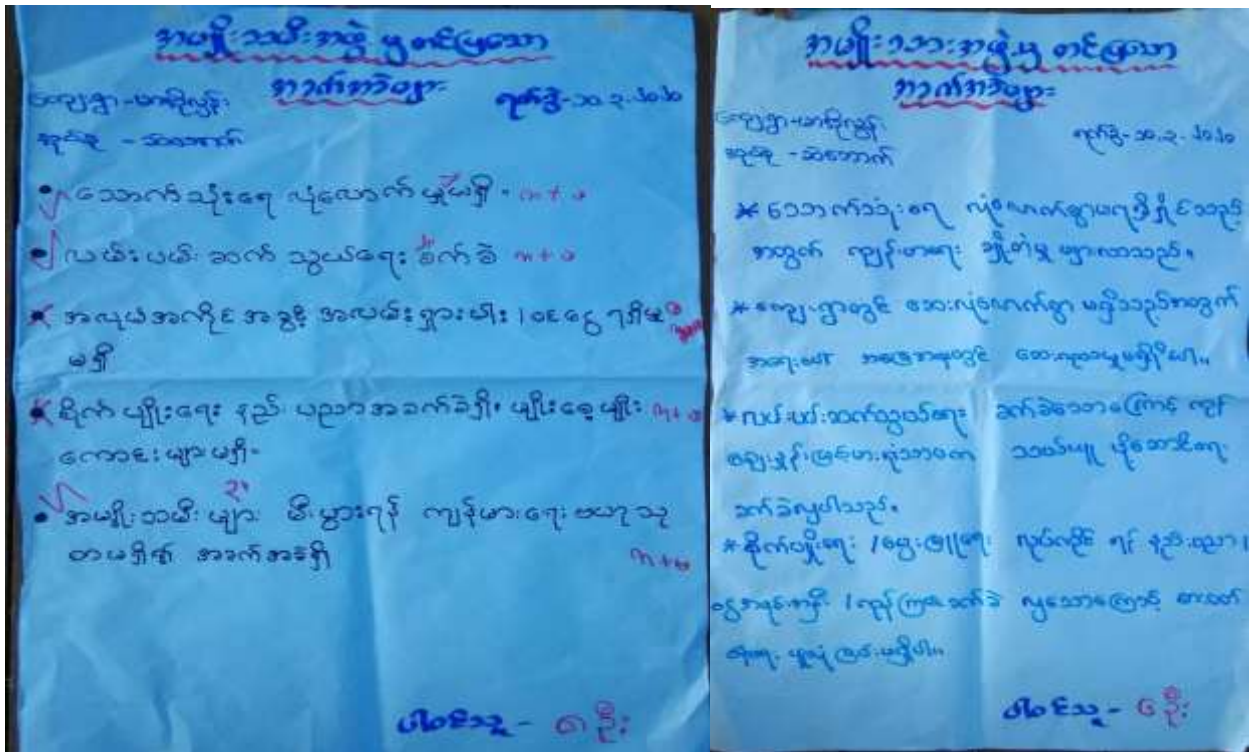 အမျိုးသမီးအဖွဲ့မှ တင်ပြသော
အခက်အခဲများ
ရက်စွဲ-၁၀.၃.၂၀၂၀
သောက်သုံးရေ လုံလောက်မှုမရှိ။
လမ်းပမ်း ဆက်သွယ်ရေး ခက်ခဲ
အလုပ်အကိုင် အခွင့် အလမ်းရှားပါး / ဝင်ငွေ ရရှိမှု
မရှိ
စိုက်ပျိုးရေး နည်းပညာအခက်ခဲရှိ၊ မျိုးစေ့မျိုး
ကောင်းများမရှိ။
အမျိုးသမီးများ မီးဖွားရန် ကျန်းမာရေး
အခက်အခဲရှိ
ပါဝင်သူ - ၈ ဦး
အမျိုးသားအဖွဲ့မှ တင်ပြသော
အခက်အခဲများ
ရက်စွဲ-၁၀.၃.၂၀၂၀
* သောက်သုံးရေ လုံလောက်စွာမရရှိသည့်
အတွက် ကျန်းမာရေး ချို့တဲ့မှု များလာသည်။
* ကျေးရွာတွင် ဆေးလုံလောက်စွာ မရှိသည့်အတွက်
အရေးပေါ် အခြေအနေတွင် ဆေးကုသမှုမရရှိပါ။
* လမ်းပမ်းဆက်သွယ်ရေး ခက်ခဲသောကြောင့် ကုန်
ဈေးနှုန်းမြင့်မားရုံသာမက သယ်ယူ ပို့ဆောင်ရေး
ခက်ခဲလှပါသည်။
* စိုက်ပျိုးရေး / မွေးမြူရေး လုပ်ကိုင် ရန် နည်းပညာ /
ငွေအရင်းအနှီး ခက်ခဲ လှသောကြောင့် စားဝတ်
နေရေး ဖူလုံခြင်းမရှိပါ။
ပါဝင်သူ - ၆ ဦး